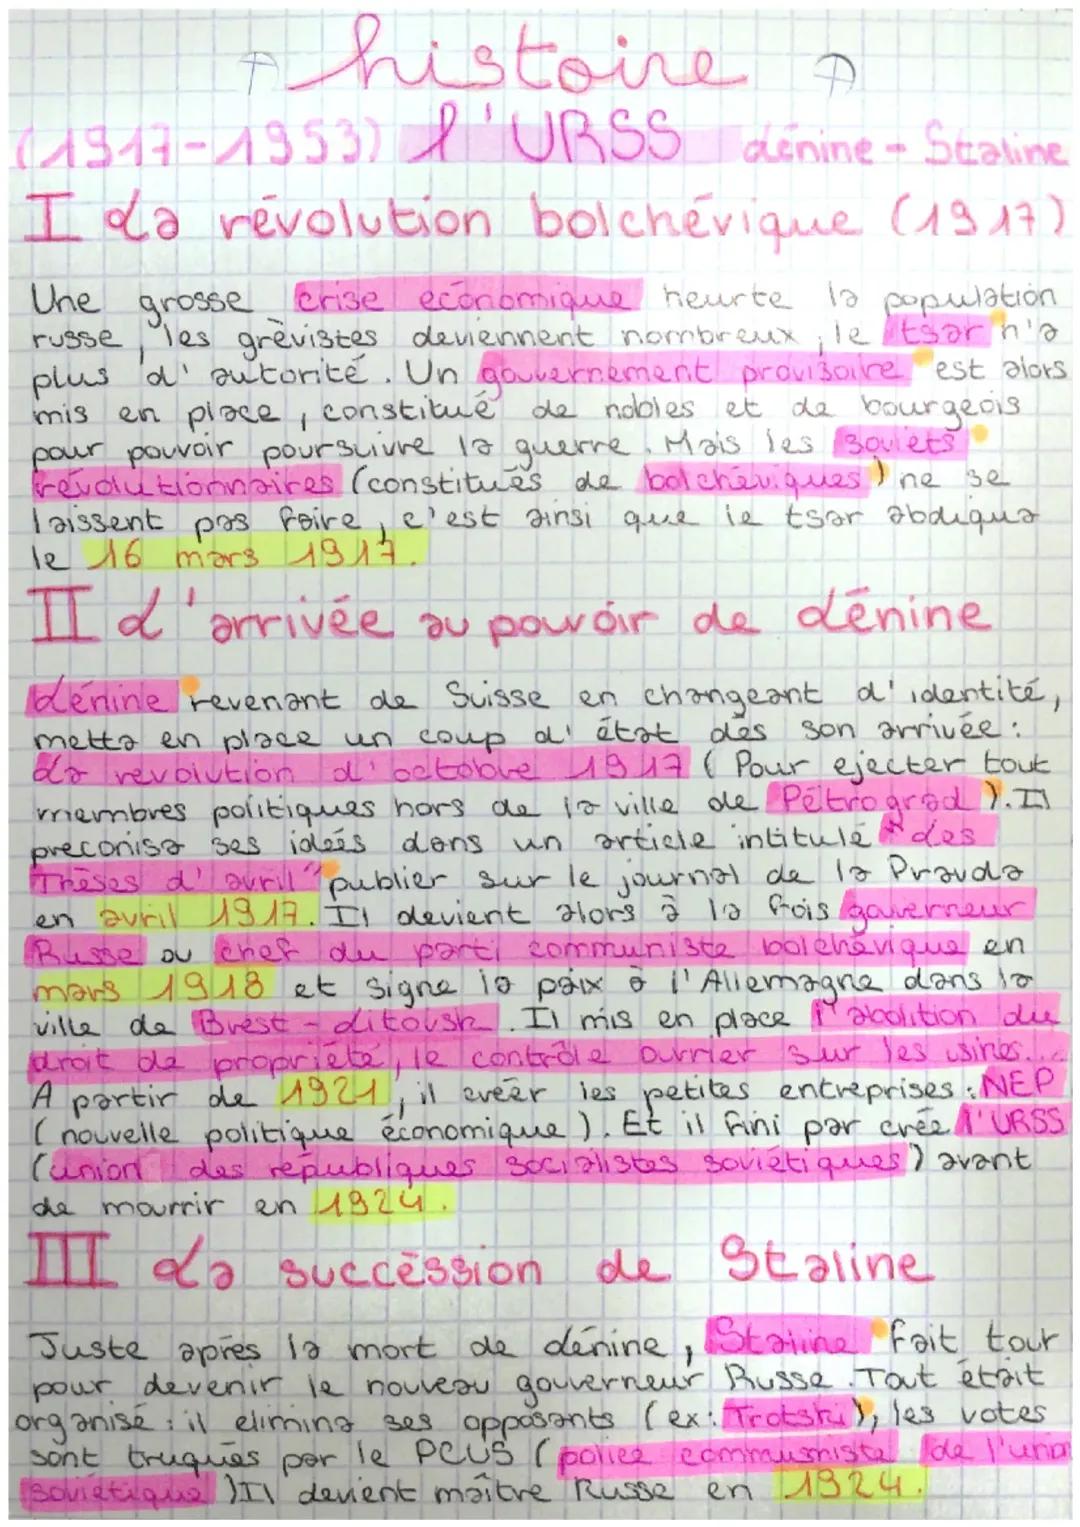 histoire
(1917-1953) l'URSS Lénine - Staline
I La révolution bolchévique (1917)
Une grosse crise économique heurte la population
russe, les grèvistes deviennent nombreux, le tsar n'a
plus d'autorité. Un gouvernement provisoire est alors
mis en place, constitué de nobles et de bourgeois
pour pouvoir poursuivre la guerre. Mais les soviets
révolutionnaires (constitués de bolchéviques) ne se
laissent pas faire, c'est ainsi que le tsar abdiqua
le 16 mars 1917.
II L'arrivée au pouvoir de Lénine
Lénine revenant de Suisse en changeant d'identité,
metta en place un coup d'état dès son arrivée :
La révolution d'octobre 1917 (Pour ejecter tout
membres politiques hors de la ville de Pétrograd). Il
preconisa ses idées dans un article intitulé "des
Thèses d'avril" publier sur le journal de la Pravda
en avril 1917. Il devient alors à la fois gouverneur
Russe ou chef du parti communiste bolchévique en
mars 1918 et signe la paix à l'Allemagne dans la
ville de Brest-Litovsk. Il mis en place l'abolition du
droit de propriété, le contrôle ouvrier sur les usines...
A partir de 1921, il créer les petites entreprises : NEP
(nouvelle politique économique). Et il fini par crée l'URSS
(union des républiques socialistes soviétiques) avant
de mourrir en 1924.
III La succéssion de Staline
Juste après la mort de Lénine, Staline fait tout
pour devenir le nouveau gouverneur Russe. Tout était
organisé : il elimina ses opposants (ex: Trotski), les votes
sont truqués par le PCUS (police communiste de l'union
soviétique) Il devient maître Russe en 1924.